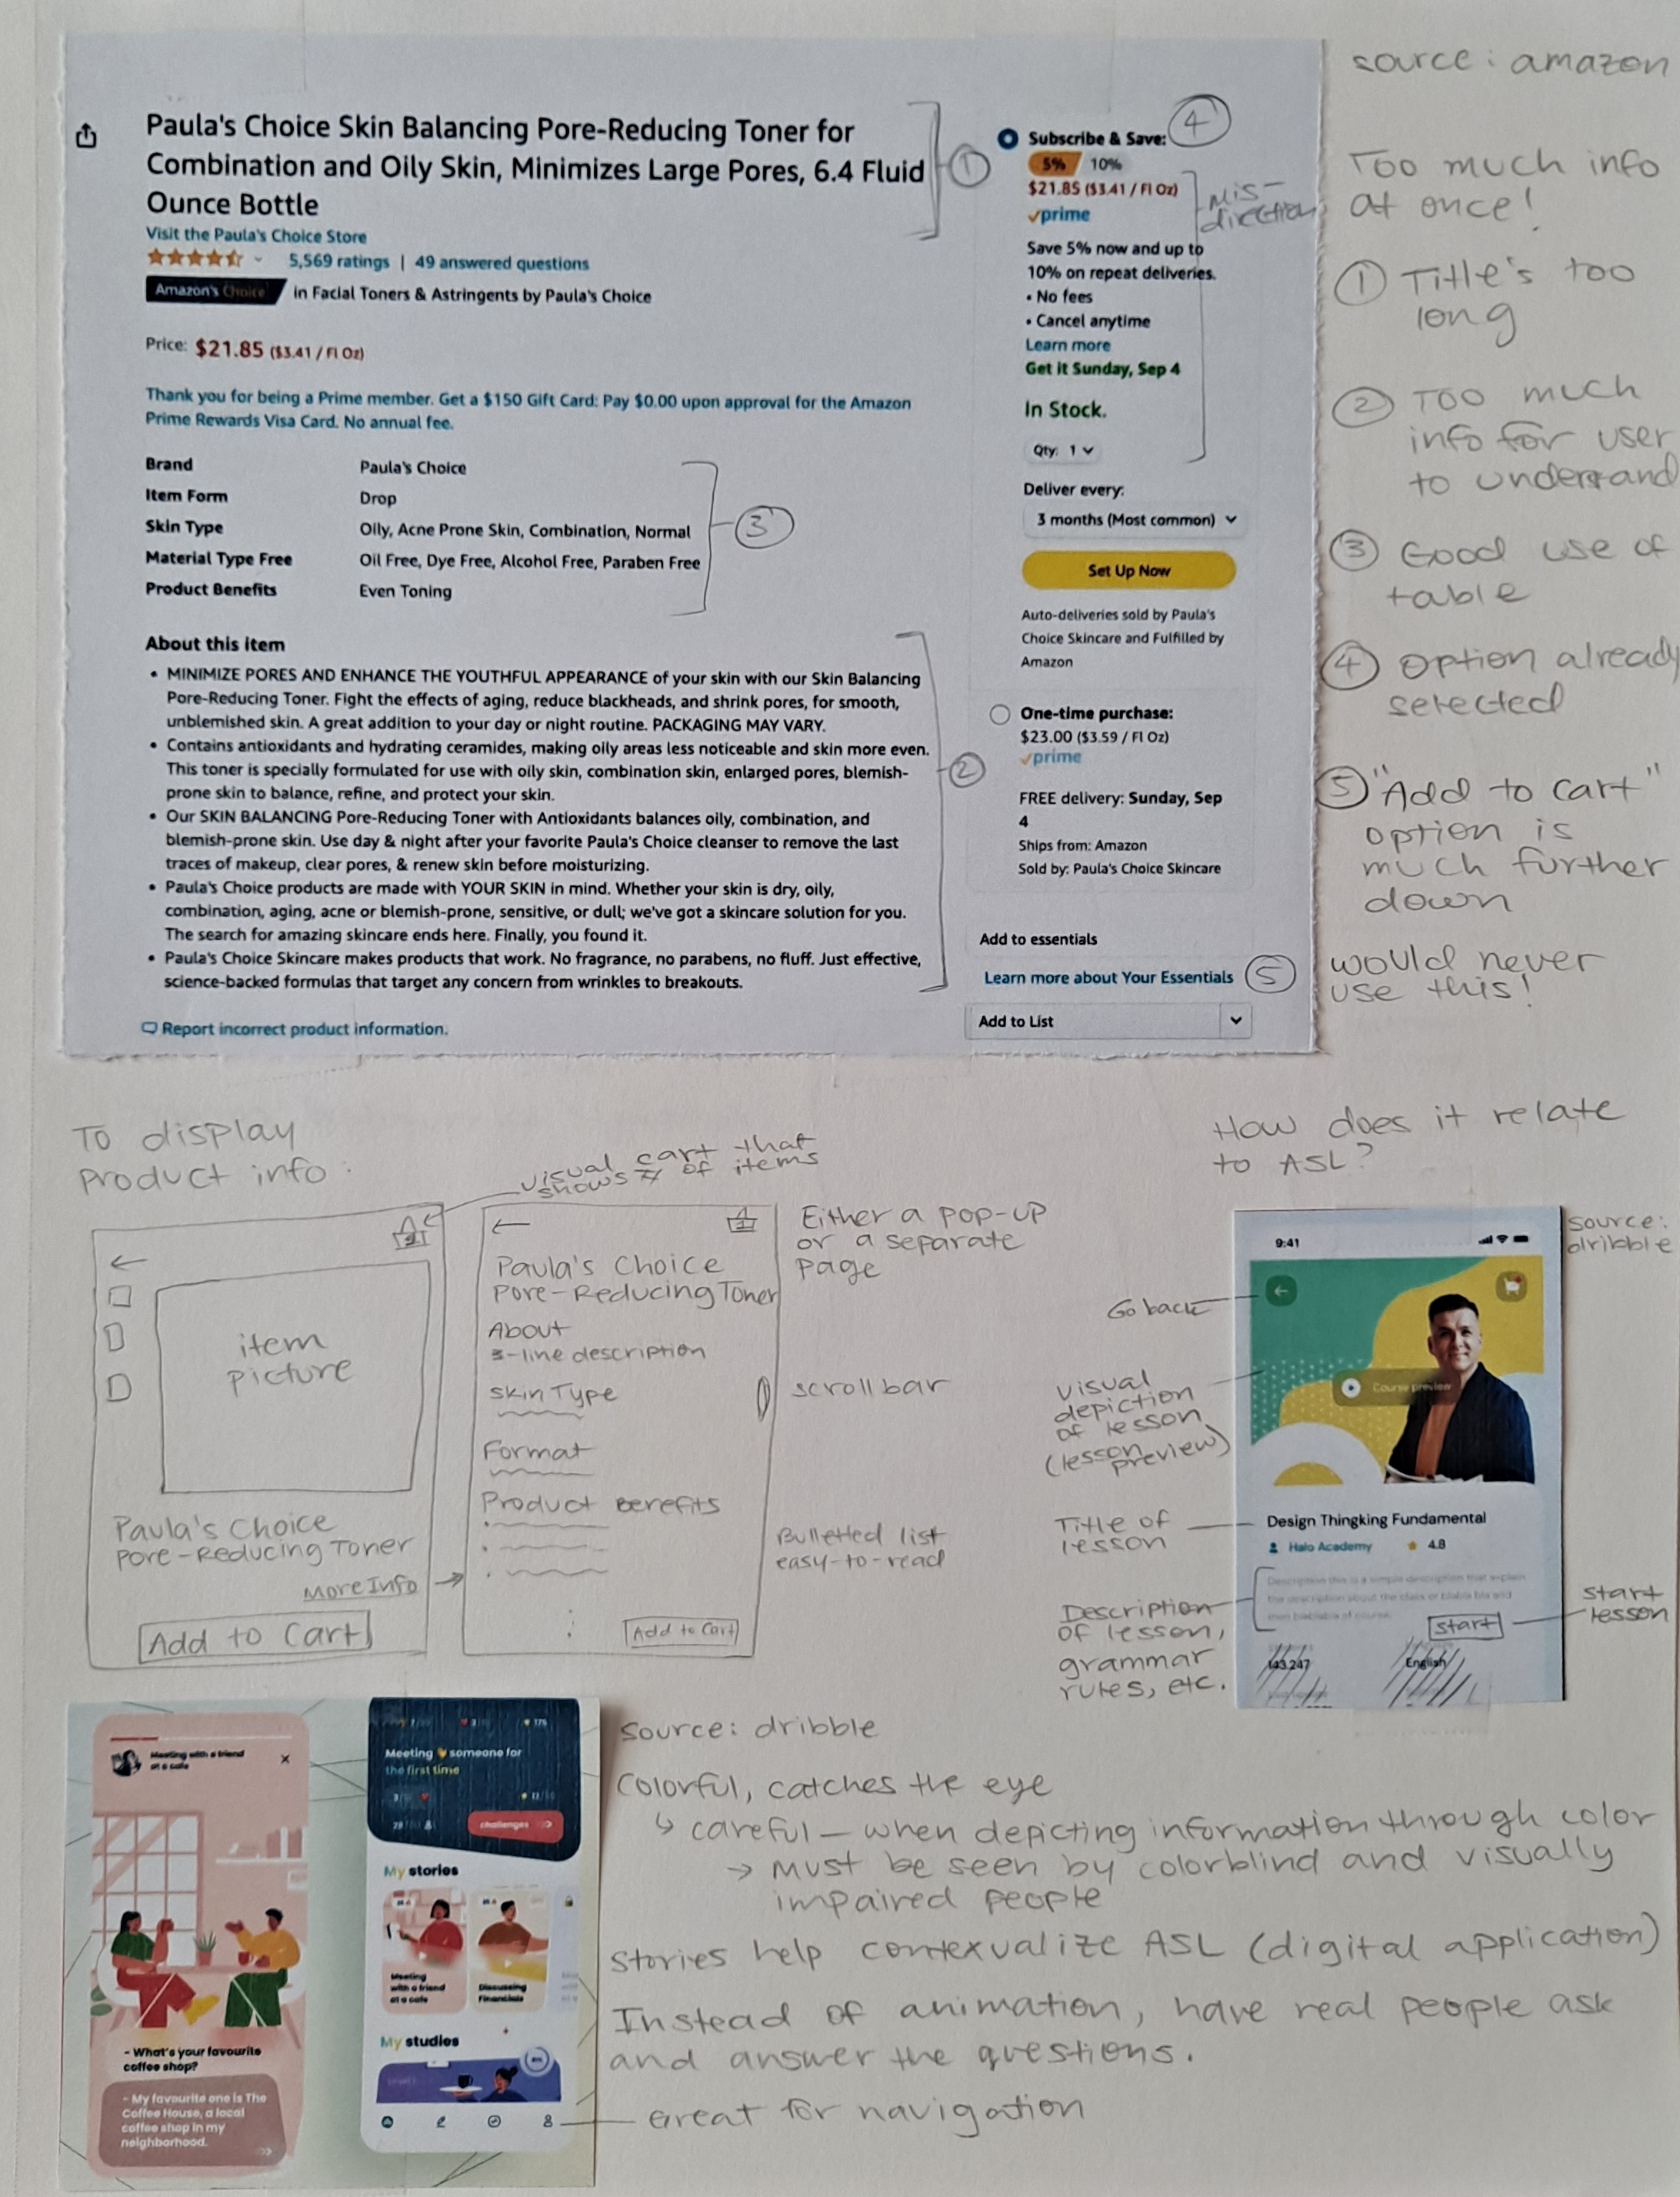 source: amazon
Paula's Choice Skin Balancing Pore-Reducing Toner for
Combination and Oily Skin, Minimizes Large Pores, 6.4 Fluid
Ounce Bottle
Visit the Paula's Choice Store
5,569 ratings | 49 answered questions
Amazon's Choice in Facial Toners & Astringents by Paula's Choice
Price: $21.85 ($3.41 / Fl Oz)
Thank you for being a Prime member. Get a $150 Gift Card: Pay $0.00 upon approval for the Amazon
Prime Rewards Visa Card. No annual fee.
Brand Paula's Choice
Item Form Drop
Skin Type Oily, Acne Prone Skin, Combination, Normal
Material Type Free Oil Free, Dye Free, Alcohol Free, Paraben Free
Product Benefits Even Toning
About this item
• MINIMIZE PORES AND ENHANCE THE YOUTHFUL APPEARANCE of your skin with our Skin Balancing
Pore-Reducing Toner. Fight the effects of aging, reduce blackheads, and shrink pores, for smooth,
unblemished skin. A great addition to your day or night routine. PACKAGING MAY VARY.
• Contains antioxidants and hydrating ceramides, making oily areas less noticeable and skin more even.
This toner is specially formulated for use with oily skin, combination skin, enlarged pores, blemish-
prone skin to balance, refine, and protect your skin.
• Our SKIN BALANCING Pore-Reducing Toner with Antioxidants balances oily, combination, and
blemish-prone skin. Use day & night after your favorite Paula's Choice cleanser to remove the last
traces of makeup, clear pores, & renew skin before moisturizing.
• Paula's Choice products are made with YOUR SKIN in mind. Whether your skin is dry, oily,
combination, aging, acne or blemish-prone, sensitive, or dull; we've got a skincare solution for you.
The search for amazing skincare ends here. Finally, you found it.
• Paula's Choice Skincare makes products that work. No fragrance, no parabens, no fluff. Just effective,
science-backed formulas that target any concern from wrinkles to breakouts.
Report incorrect product information.
1
3
2
Subscribe & Save:
4
5% 10%
$21.85 ($3.41 / Fl Oz)
prime
Mis-
direction
Save 5% now and up to
10% on repeat deliveries.
• No fees
• Cancel anytime
Learn more
Get it Sunday, Sep 4
In Stock.
Qty: 1
Deliver every:
3 months (Most common)
Set Up Now
Auto-deliveries sold by Paula's
Choice Skincare and Fulfilled by
Amazon
One-time purchase:
$23.00 ($3.59 / Fl Oz)
prime
FREE delivery: Sunday, Sep
4
Ships from: Amazon
Sold by: Paula's Choice Skincare
Add to essentials
Learn more about Your Essentials
5
Add to List
Too much info
at once!
1 Title's too
long
2 Too much
info for user
to understand
3 Good use of
table
4 option already
selected
5 "Add to cart"
option is
much further
down
would never
use this!
To display
product info:
visual cart that
shows # of items
item
picture
Paula's Choice
Pore-Reducing Toner
More Info
Add to Cart
Paula's Choice
Pore-Reducing Toner
About
3-line description
Skin Type
Format
Product Benefits
Add to Cart
Either a pop-up
or a separate
page
scrollbar
Bulletted list
easy-to-read
How does it relate
to ASL?
source:
dribble
Go back
visual
depiction
of lesson
(lesson
preview)
Title of
lesson
Description
of lesson,
grammar
rules, etc.
9:41
Course preview
Design Thingking Fundamental
Halo Academy 4.8
Description this is a simple description that explain
the description about the class or blabla bla and
start
143,247 English
start
lesson
Meeting with a friend
at a cafe
- What's your favourite
coffee shop?
- My favourite one is The
Coffee House, a local
coffee shop in my
neighborhood.
175
Meeting someone for
the first time
challenges
My stories
Meeting
with a friend
at a cafe
Discussing
Financials
My studies
source: dribble
Colorful, catches the eye
careful — when depicting information through color
→ Must be seen by colorblind and visually
impaired people
Stories help contexualize ASL (digital application)
Instead of animation, have real people ask
and answer the questions.
Great for navigation